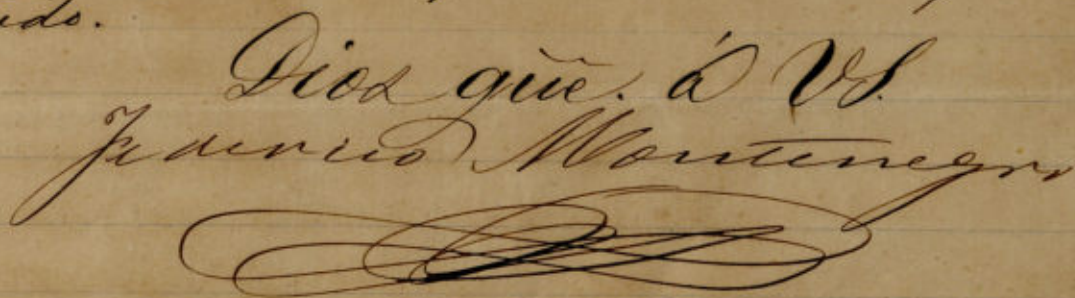 ido.
Dios gũe. á VS.
Federico Montenegro